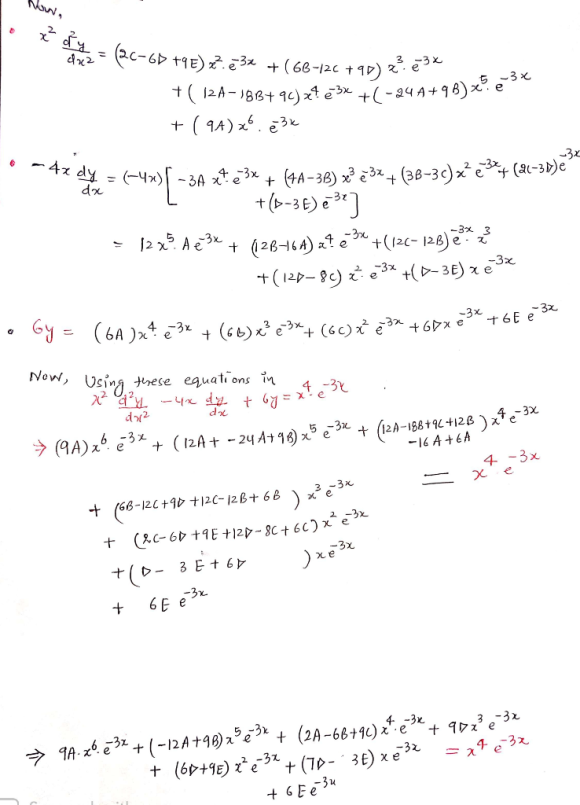 Now,
• x² d²y/dx² = (2C-6D+9E) x². e^-3x + (6B-12C+9D) x³. e^-3x
+ (12A-18B+9C) x⁴ e^-3x + (-24A+9B) x⁵. e^-3x
+ (9A) x⁶. e^-3x
• -4x dy/dx = (-4x)[-3A x⁴. e^-3x + (4A-3B) x³ e^-3x + (3B-3C) x² e^-3x + (2C-3D) e^-3x
+ (D-3E) e^-3x]
= 12x⁵. A e^-3x + (12B-16A) x⁴. e^-3x + (12C-12B) e^-3x. x³
+ (12D-8C) x². e^-3x + (D-3E) x e^-3x
• 6y = (6A) x⁴. e^-3x + (6B) x³ e^-3x + (6C) x² e^-3x + 6Dx e^-3x + 6E e^-3x
Now, Using these equations in
x² d²y/dx² - 4x dy/dx + 6y = x⁴. e^-3x.
⇒ (9A) x⁶. e^-3x + (12A + -24A+9B) x⁵ e^-3x + (12A-18B+9C+12B
-16A+6A) x⁴ e^-3x
= x⁴ e^-3x
+ (6B-12C+9D+12C-12B+6B) x³ e^-3x
+ (2C-6D+9E+12D-8C+6C) x² e^-3x
+ (D-3E+6D) x e^-3x
+ 6E e^-3x
⇒ 9A. x⁶. e^-3x + (-12A+9B) x⁵ e^-3x + (2A-6B+9C) x⁴. e^-3x + 9D x³ e^-3x
+ (6D+9E) x² e^-3x + (7D-3E) x e^-3x = x⁴ e^-3x
+ 6E e^-3x